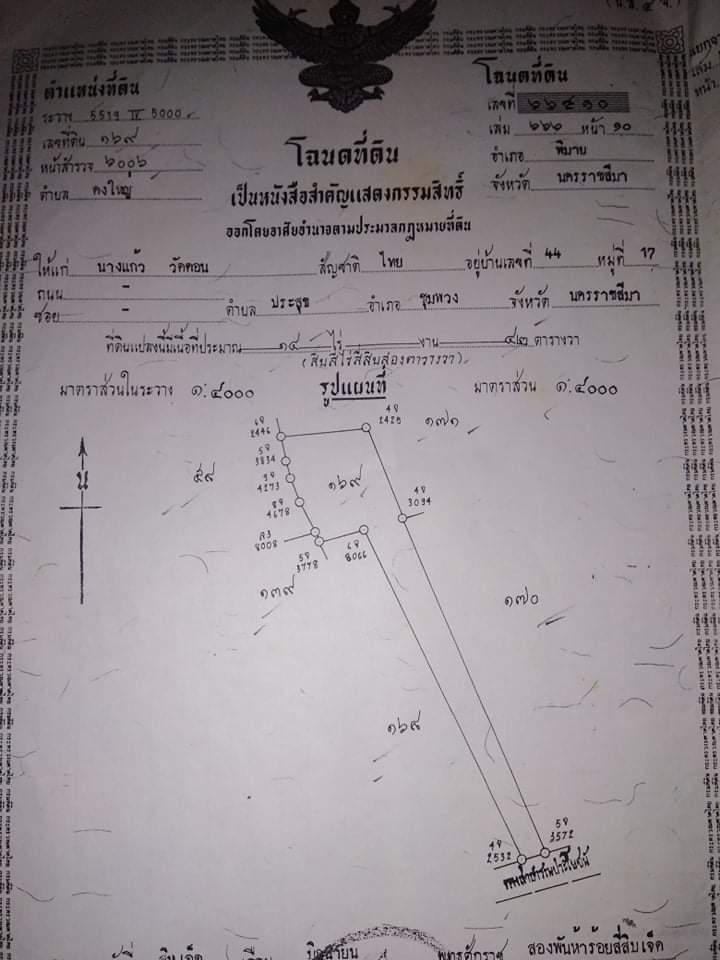 (น.ส. ๔ จ.)
ตำแหน่งที่ดิน
ระวาง 5539 IV 5000
เลขที่ดิน ๑๖๙
หน้าสำรวจ ๒๐๐๖
ตำบล ดงใหญ่
โฉนดที่ดิน
เลขที่ ๖๖๔๑๐
เล่ม ๖๖๐ หน้า ๑๐
อำเภอ พิมาย
จังหวัด นครราชสีมา
โฉนดที่ดิน
เป็นหนังสือสำคัญแสดงกรรมสิทธิ์
ออกโดยอาศัยอำนาจตามประมวลกฎหมายที่ดิน
ให้แก่ นางแก้ว วัดดอน สัญชาติ ไทย อยู่บ้านเลขที่ 44 หมู่ที่ 17
ถนน -
ซอย - ตำบล ประสุข อำเภอ ชุมพวง จังหวัด นครราชสีมา
ที่ดินแปลงนี้มีเนื้อที่ประมาณ ๑๔ ไร่ งาน ๔๒ ตารางวา
(สิบสี่ไร่สี่สิบสองตารางวา)
มาตราส่วนในระวาง ๑:๔๐๐๐ รูปแผนที่ มาตราส่วน ๑:๔๐๐๐
น
2446
2425
๑๗๑
3834
๕๙
4273
๑๖๙
4678
3094
8008
3778
8066
๑๓๙
๑๗๐
๑๖๘
2532
3572
ทางสาธารณประโยชน์
สิบเจ็ด เดือน มิถุนายน พุทธศักราช สองพันห้าร้อยสี่สิบเจ็ด